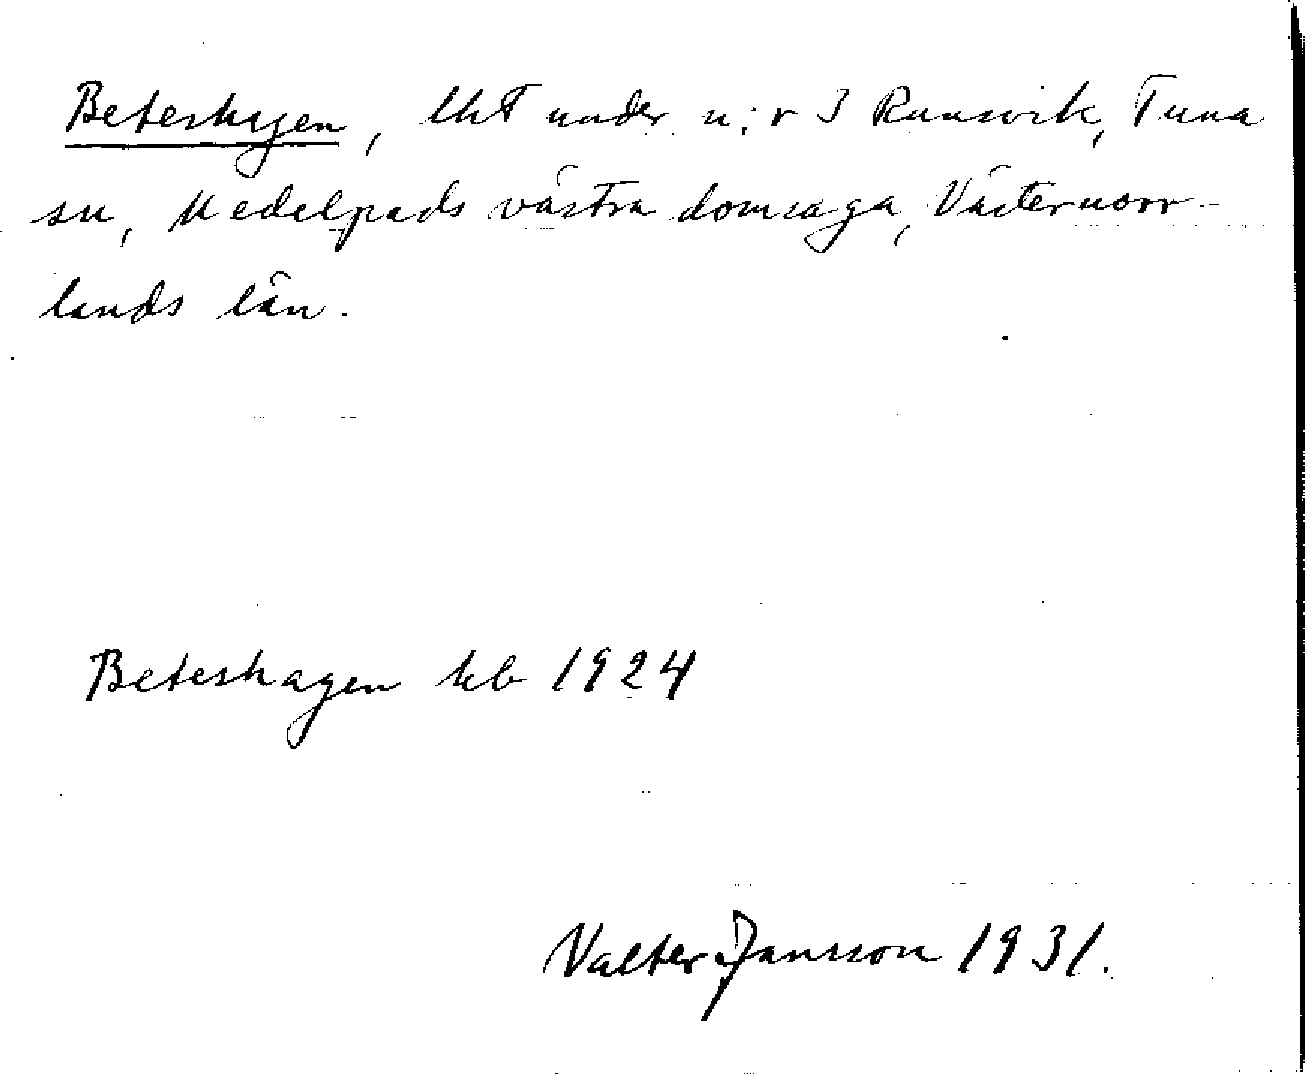 Beteshagen, lht under n:r 3 Runsvik, Tuna
sn, Medelpads västra domsaga, Västernorr-
lands län.
Beteshagen kb 1924
Valter Jansson 1931.